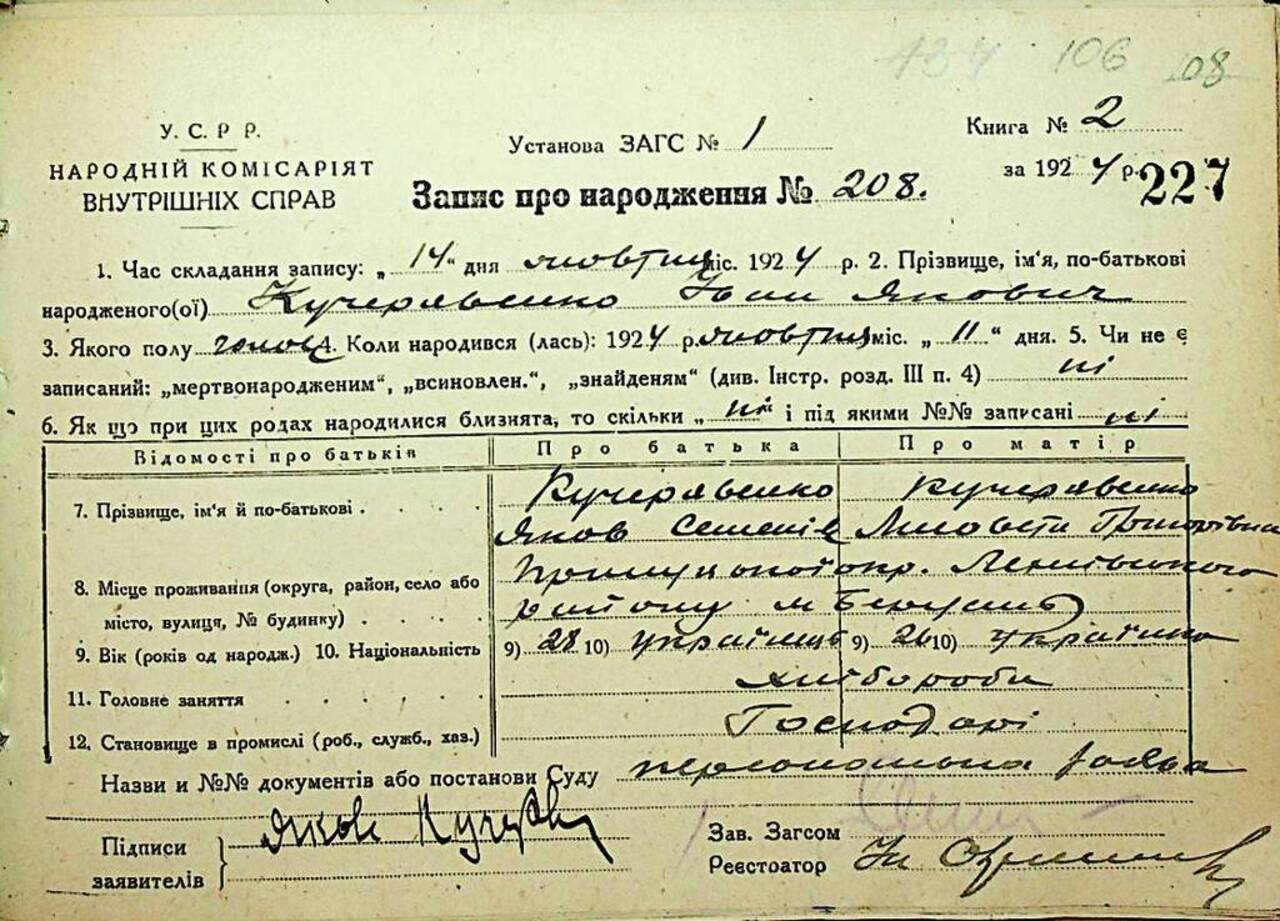 106 08
У. С. Р Р.
НАРОДНІЙ КОМІСАРІЯТ
ВНУТРІШНІХ СПРАВ
Установа ЗАГС № 1
Книга № 2
за 1924 р.
227
Запис про народження № 208.
1. Час складання запису: „ 14 “ дня жовтня міс. 1924 р. 2. Прізвище, ім'я, по-батькові
народженого(ої) Кучерявенко Іван Якович
3. Якого полу чолов 4. Коли народився (лась): 1924 р. жовтня міс. „ 11 “ дня. 5. Чи не є
записаний: „мертвонародженим“, „всиновлен.“, „знайденям“ (див. Інстр. розд. III п. 4) ні
6. Як що при цих родах народилися близнята, то скільки „ ні “ і під якими №№ записані ні
Відомості про батьків Про батька Про матір
7. Прізвище, ім'я й по-батькові Кучерявенко Кучерявенко
Яков Семенів Григорівна
8. Місце проживання (округа, район, село або Прилуцької окр.
місто, вулиця, № будинку) району м
9. Вік (років од народж.) 10. Національність 9) 28 10) українець 9) 26 10) українка
11. Головне заняття хлібороби
12. Становище в промислі (роб., служб., хаз.) Господарі
Назви и №№ документів або постанови Суду персональна заява
Підписи
заявителів
Яков
Зав. Загсом
Реєстоатор